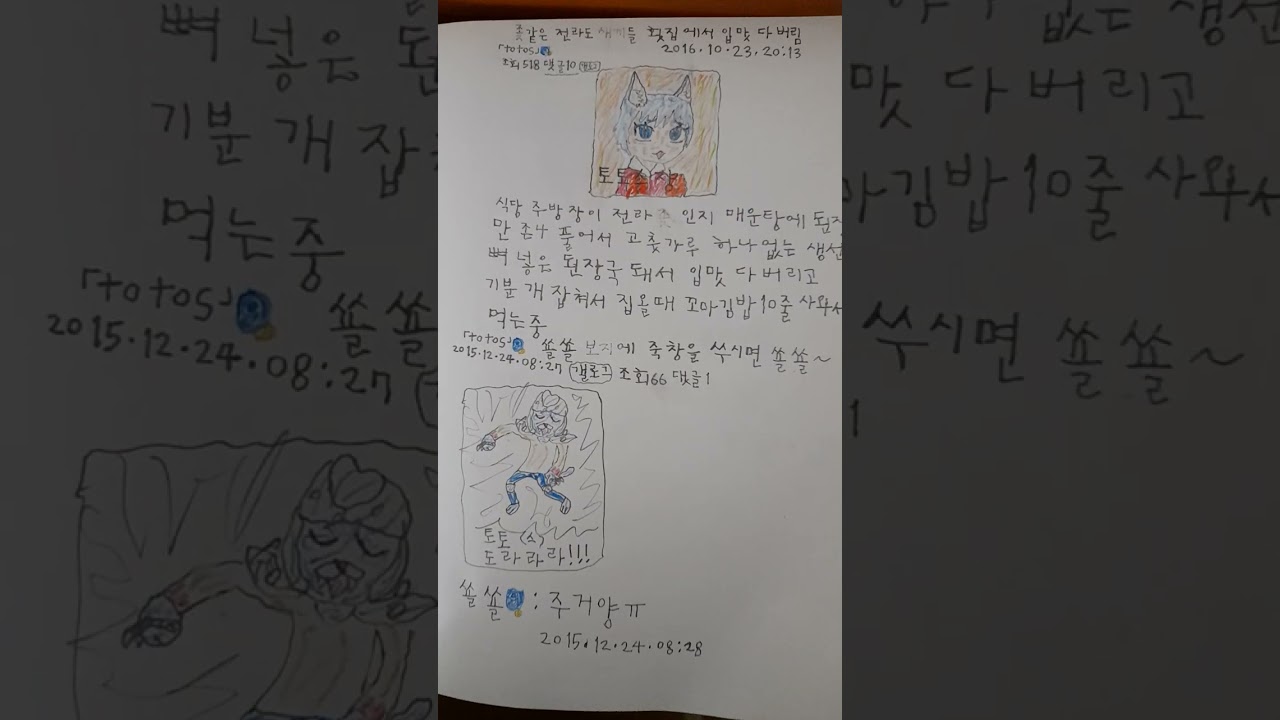 좆같은 전라도 새끼들 횟집에서 입맛 다 버림
rtotosJ
2016.10.23, 20:13
조회518 댓글10
토토 장
식당 주방장이 전라 인지 매운탕에 된장
만 존나 풀어서 고춧가루 하나 없는 생선
뼈 넣은 된장국 돼서 입맛 다 버리고
기분 개 잡쳐서 집올때 꼬마김밥 10줄 사와서
먹는중
rtotosJ 쑐쑐 보지에 죽창을 쑤시면 쑐쑐~
2015.12.24.08:27 갤로그 조회66 댓글1
토토 (소)
도라라라!!!
쑐쑐 : 주거양ㅠ
2015.12.24.08:28